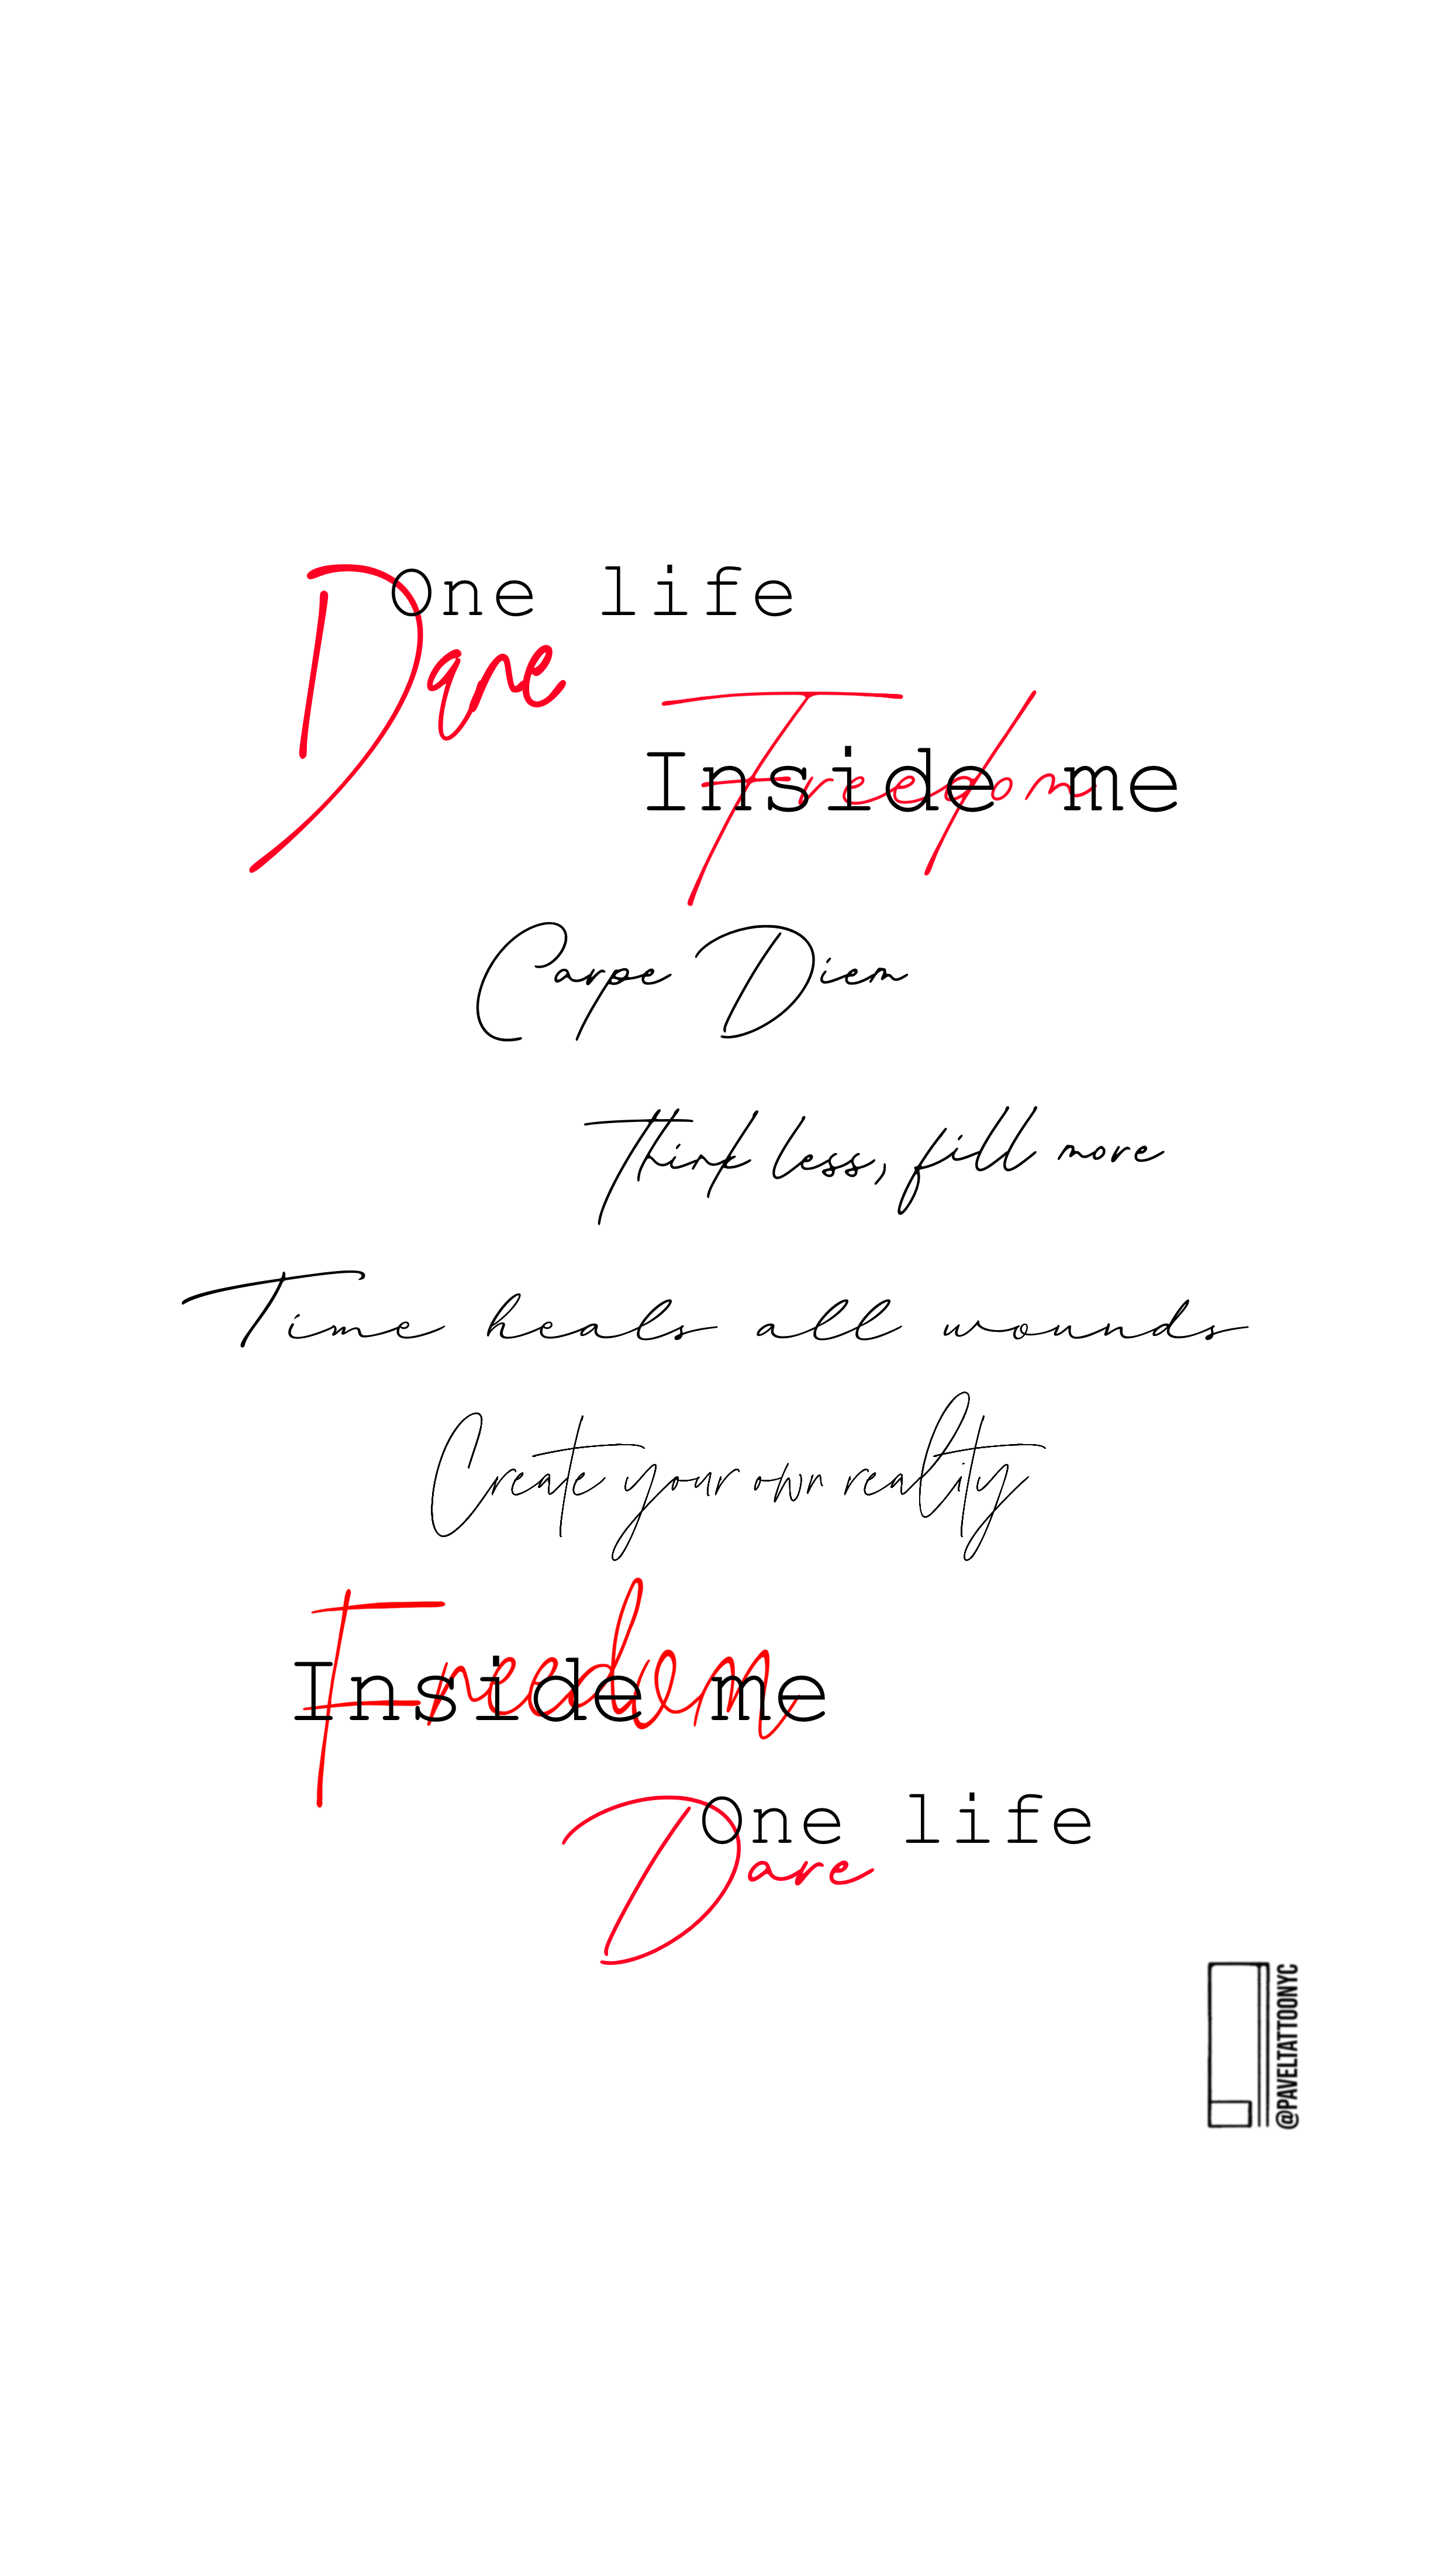 One life
Dare
Freedom
Inside me
Carpe Diem
Think less, fill more
Time heals all wounds
Create your own reality
Freedom
Inside me
One life
Dare
@PAVELTATTOONYC